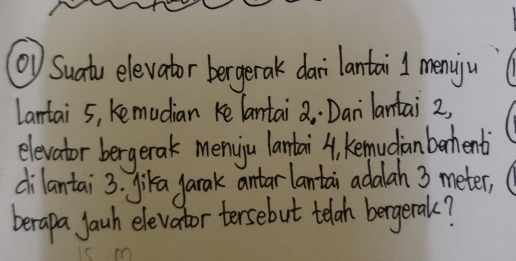 01 Suatu elevator bergerak dari lantai 1 menuju
lantai 5, kemudian ke lantai 2. Dari lantai 2,
elevator bergerak menuju lantai 4, kemudian berhenti
di lantai 3. Jika jarak antar lantai adalah 3 meter,
berapa jauh elevator tersebut telah bergerak?
15 m